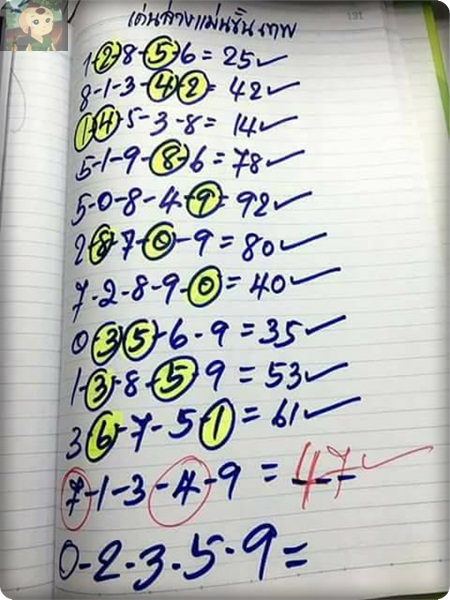 เด่นล่างแม่นขั้นเทพ
1-2-8-5-6 = 25✓
8-1-3-4-2 = 42✓
1-4-5-3-8 = 14✓
5-1-9-8-6 = 78✓
5-0-8-4-9 = 92✓
2-8-7-0-9 = 80✓
7-2-8-9-0 = 40✓
0-3-5-6-9 = 35✓
1-3-8-5-9 = 53✓
3-6-7-5-1 = 61✓
7-1-3-4-9 = 47✓
0-2-3-5-9 =